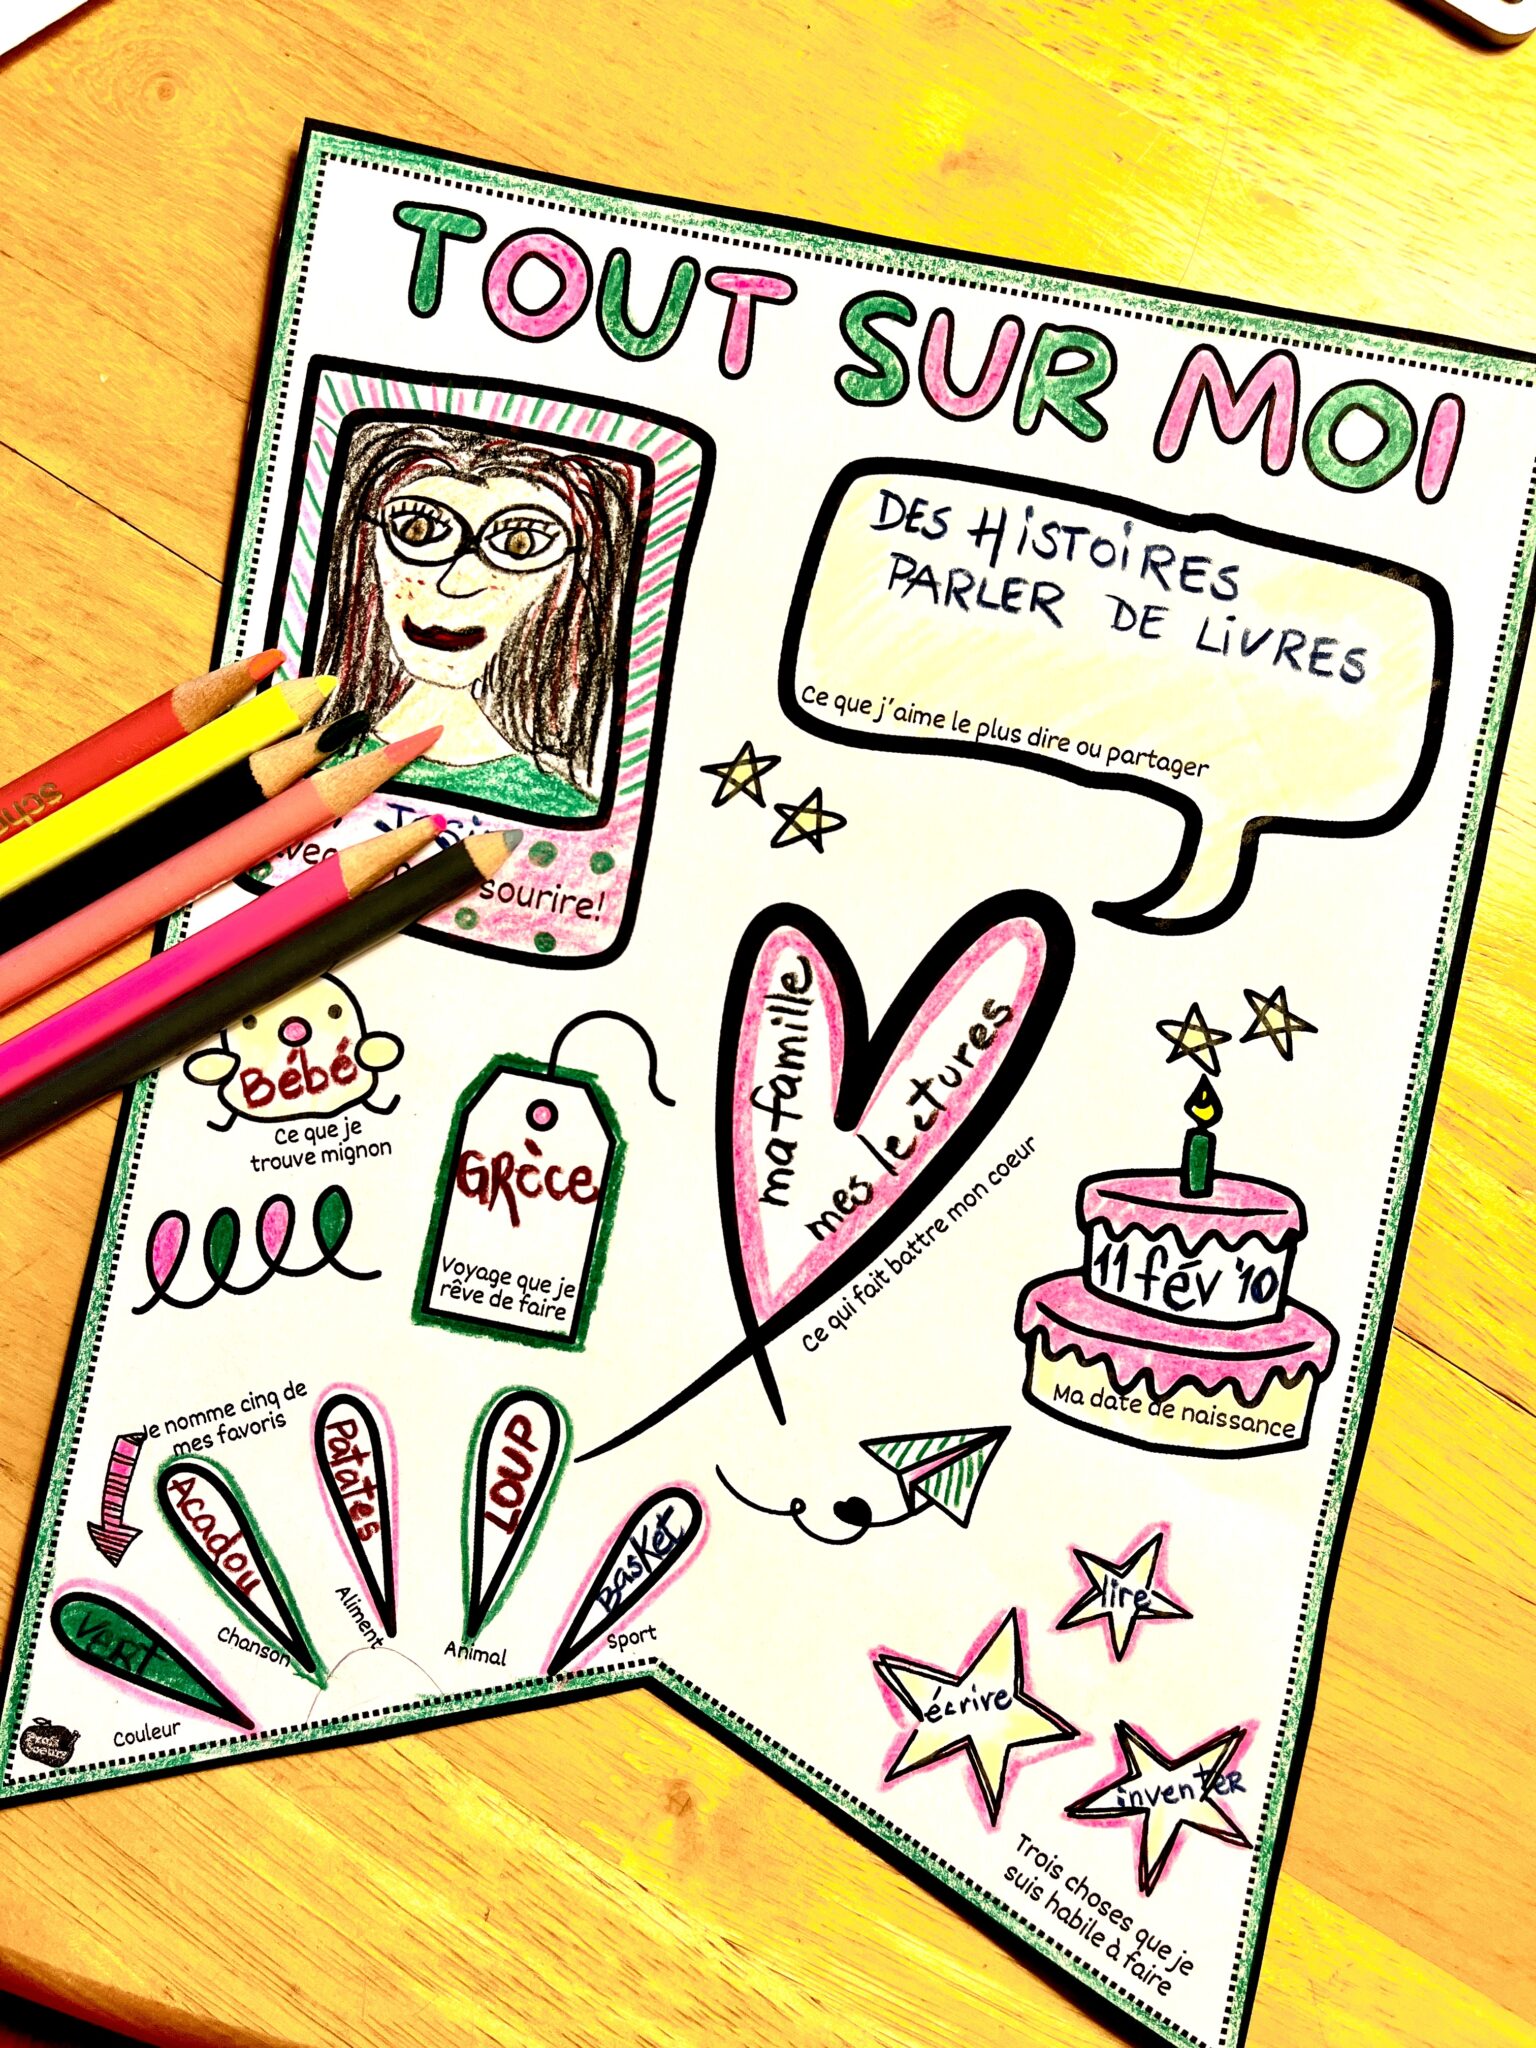 TOUT SUR MOI
DES HISTOIRES
PARLER DE LIVRES
Ce que j'aime le plus dire ou partager
sourire!
ma famille
mes lectures
Ce qui fait battre mon coeur
Bébé
Ce que je
trouve mignon
GRèce
Voyage que je
rêve de faire
11 fév '10
Ma date de naissance
Je nomme cinq de
mes favoris
vert
Couleur
Acadou
Chanson
Patates
Aliment
LOUP
Animal
Basket
Sport
lire
écrire
inventER
Trois choses que je
suis habile à faire